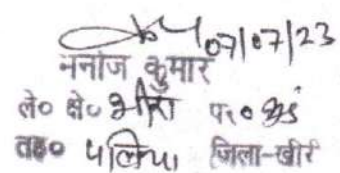 07/07/23
ननोज कुमार
ले० क्षे० भीरा प०
तह० पलिया जिला-खीरी